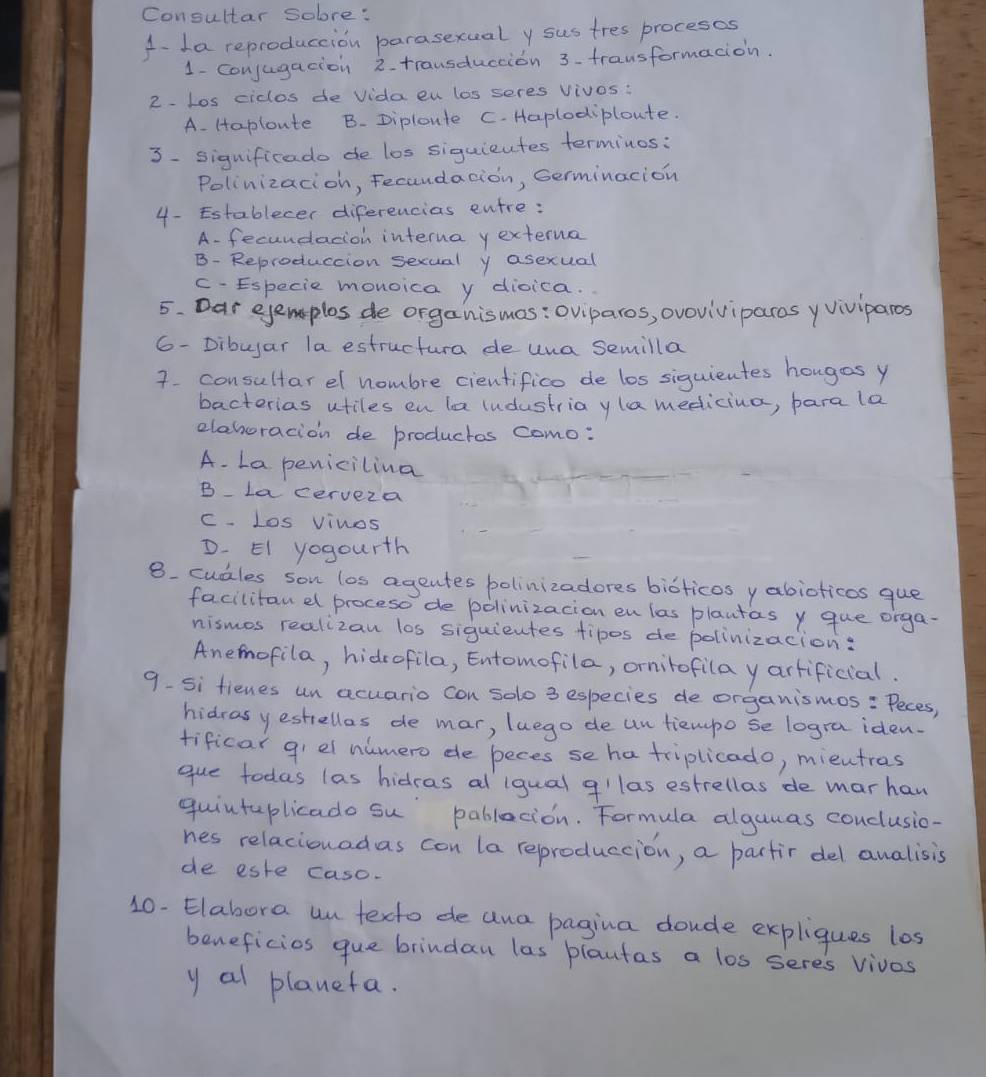 Consultar sobre:
1- La reproducción parasexual y sus tres procesos
1- Conjugación 2- transducción 3- transformación.
2- Los ciclos de vida en los seres vivos:
A- Haplonte B- Diplonte C- Haplodiplonte.
3- significado de los siguientes terminos:
Polinización, Fecundación, Germinación
4- Establecer diferencias entre:
A- fecundación interna y externa
B- Reproduccion sexual y asexual
C- Especie monoica y dioica.
5- Dar ejemplos de organismos: oviparos, ovovíviparos y vivíparos
6- Dibujar la estructura de una semilla
7- consultar el nombre cientifico de los siguientes hongos y
bacterias utiles en la industria y la medicina, para la
elaboración de productos como:
A- La penicilina
B- La cerveza
C- Los vinos
D- El yogourth
8- cuáles son los agentes polinizadores bióticos y abioticos que
facilitan el proceso de polinizacion en las plantas y que orga-
nismos realizan los siguientes tipos de polinización:
Anemofila, hidrofila, Entomofila, ornitofila y artificial.
9- si tienes un acuario con solo 3 especies de organismos: Peces,
hidras y estrellas de mar, luego de un tiempo se logra iden-
tificar q' el número de peces se ha triplicado, mientras
que todas las hidras al igual q' las estrellas de mar han
quintuplicado su población. Formula algunas conclusio-
nes relacionadas con la reproducción, a partir del analisis
de este caso.
10- Elabora un texto de una pagina donde expliques los
beneficios que brindan las plantas a los seres vivos
y al planeta.